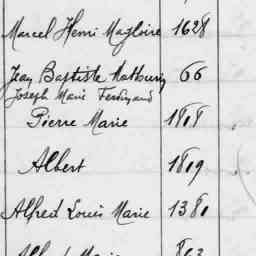 Marcel Henri Magloire 1628
Jean Baptiste Mathurin 66
Joseph Marie Ferdinand
Pierre Marie 1818
Albert 1819
Alfred Louis Marie 1381